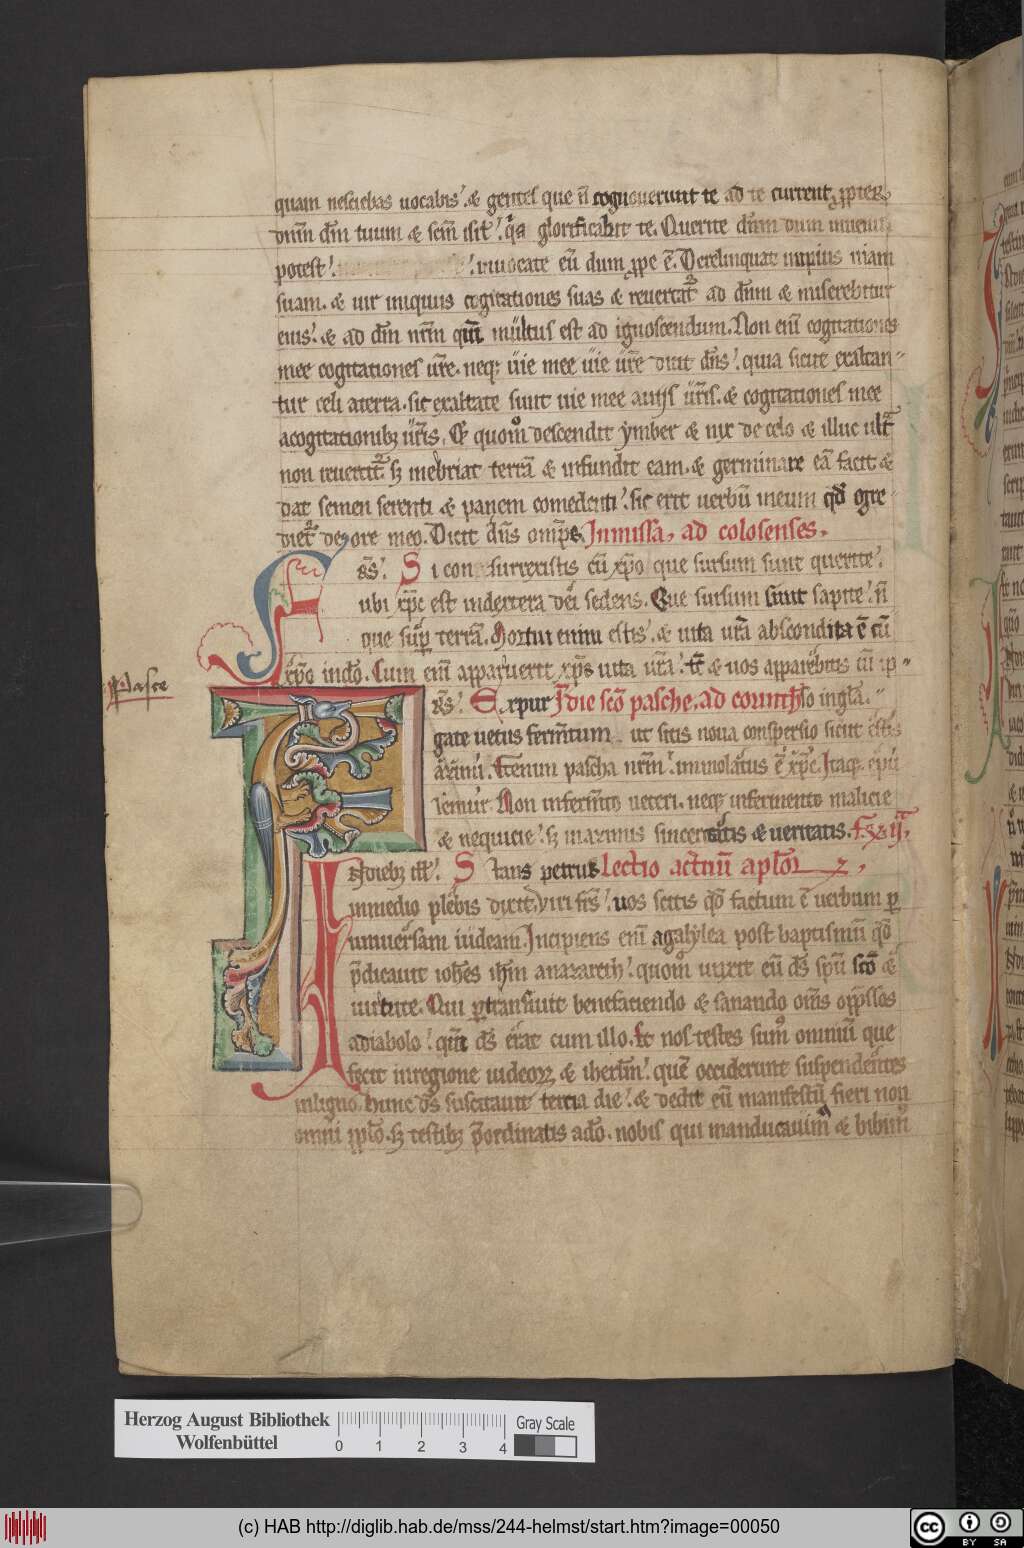 quam nesciebas uocabis. & gentes que n̄ cognouerunt te ad te current, ꝓpter
dnm̄ dm̄ tuum & scm̄ isrl̄. qͥa glorificabit te. Querite dnm̄ dum inueniri
potest. inuocate eū dum ꝓpe ē. Derelinquat impius uiam
suam. & uir iniquus cogitationes suas & reuertat᷑ ad dnm̄ & miserebitur
eius. & ad dm̄ nrm̄ qm̄ multus est ad ignoscendum. Non enī cogitationes
mee cogitationes ur̄e. neqꝫ uie mee uie ur̄e dicit dn̄s. quia sicut exaltan-
tur celi aterra. sic exaltate sunt uie mee auijs ur̄is. & cogitationes mee
acogitationibꝫ ur̄is, Et quomͦ descendit ymber & nix de celo & illuc ultͣ
non reuertit᷑ sꝫ inebriat terrā & infundit eam. & germinare eā facit &
dat semen serenti & panem comedenti. sic erit uerbū meum qd̄ egre-
diet᷑ de ore meo. Dicit dn̄s omp̄s. Jn missa, ad colosenses,
Fr̄s. Si con surrexistis cū xp̄o que sursum sunt querite.
ubi xp̄c est indextera dei sedens. Que sursum sunt sapite. n̄
que suꝑ terrā. Mortui enim estis. & uita ur̄a abscondita ē cū
xp̄o indō. Cum enī apparuerit xp̄s uita ur̄a. tc̄ & uos apparebitis cū ip-
Pasce
Fr̄s. Expur Jn die scō pasche. ad corinth so in gla.
gate uetus fermtum ut sitis noua conspersio sicut estis
azimi. Etenim pascha nrm̄. immolatus ē xp̄c. Itaqꝫ epu
lemur. Non infermto ueteri. neqꝫ infermento malicie
& nequicie. sꝫ inazimis sinceritatis & ueritatis. F. ij,
Jn diebꝫ ill̄. Stans petrus Lectio actuū aplor̄,
inmedio plebis dixit, Viri frs̄. uos scitis qd̄ factum ē uerbum ꝑ
uniuersam iudeam. Incipiens enī agalylea post baptismū qd̄
p̄dicauit ioh̄es ih̄m anazareth. quomͦ unxit eū ds̄ spū scō &
uirtute. Qui ꝑtransiuit benefaciendo & sanando om̄s opp̄ssos
adiabolo. qm̄ ds̄ erat cum illo. Et nos testes sumꝰ omniū que
fecit inregione iudeoꝝ & iherlm̄. quē occiderunt suspendentes
inligno. hunc ds̄ suscitauit tercia die. & dedit eū manifestū fieri non
omni ppl̄o. sꝫ testibꝫ p̄ordinatis adō. nobis qui manducauimꝰ & bibimꝰ
Herzog August Bibliothek
Wolfenbüttel
0 1 2 3 4
Gray Scale
(c) HAB http://diglib.hab.de/mss/244-helmst/start.htm?image=00050
cc BY SA